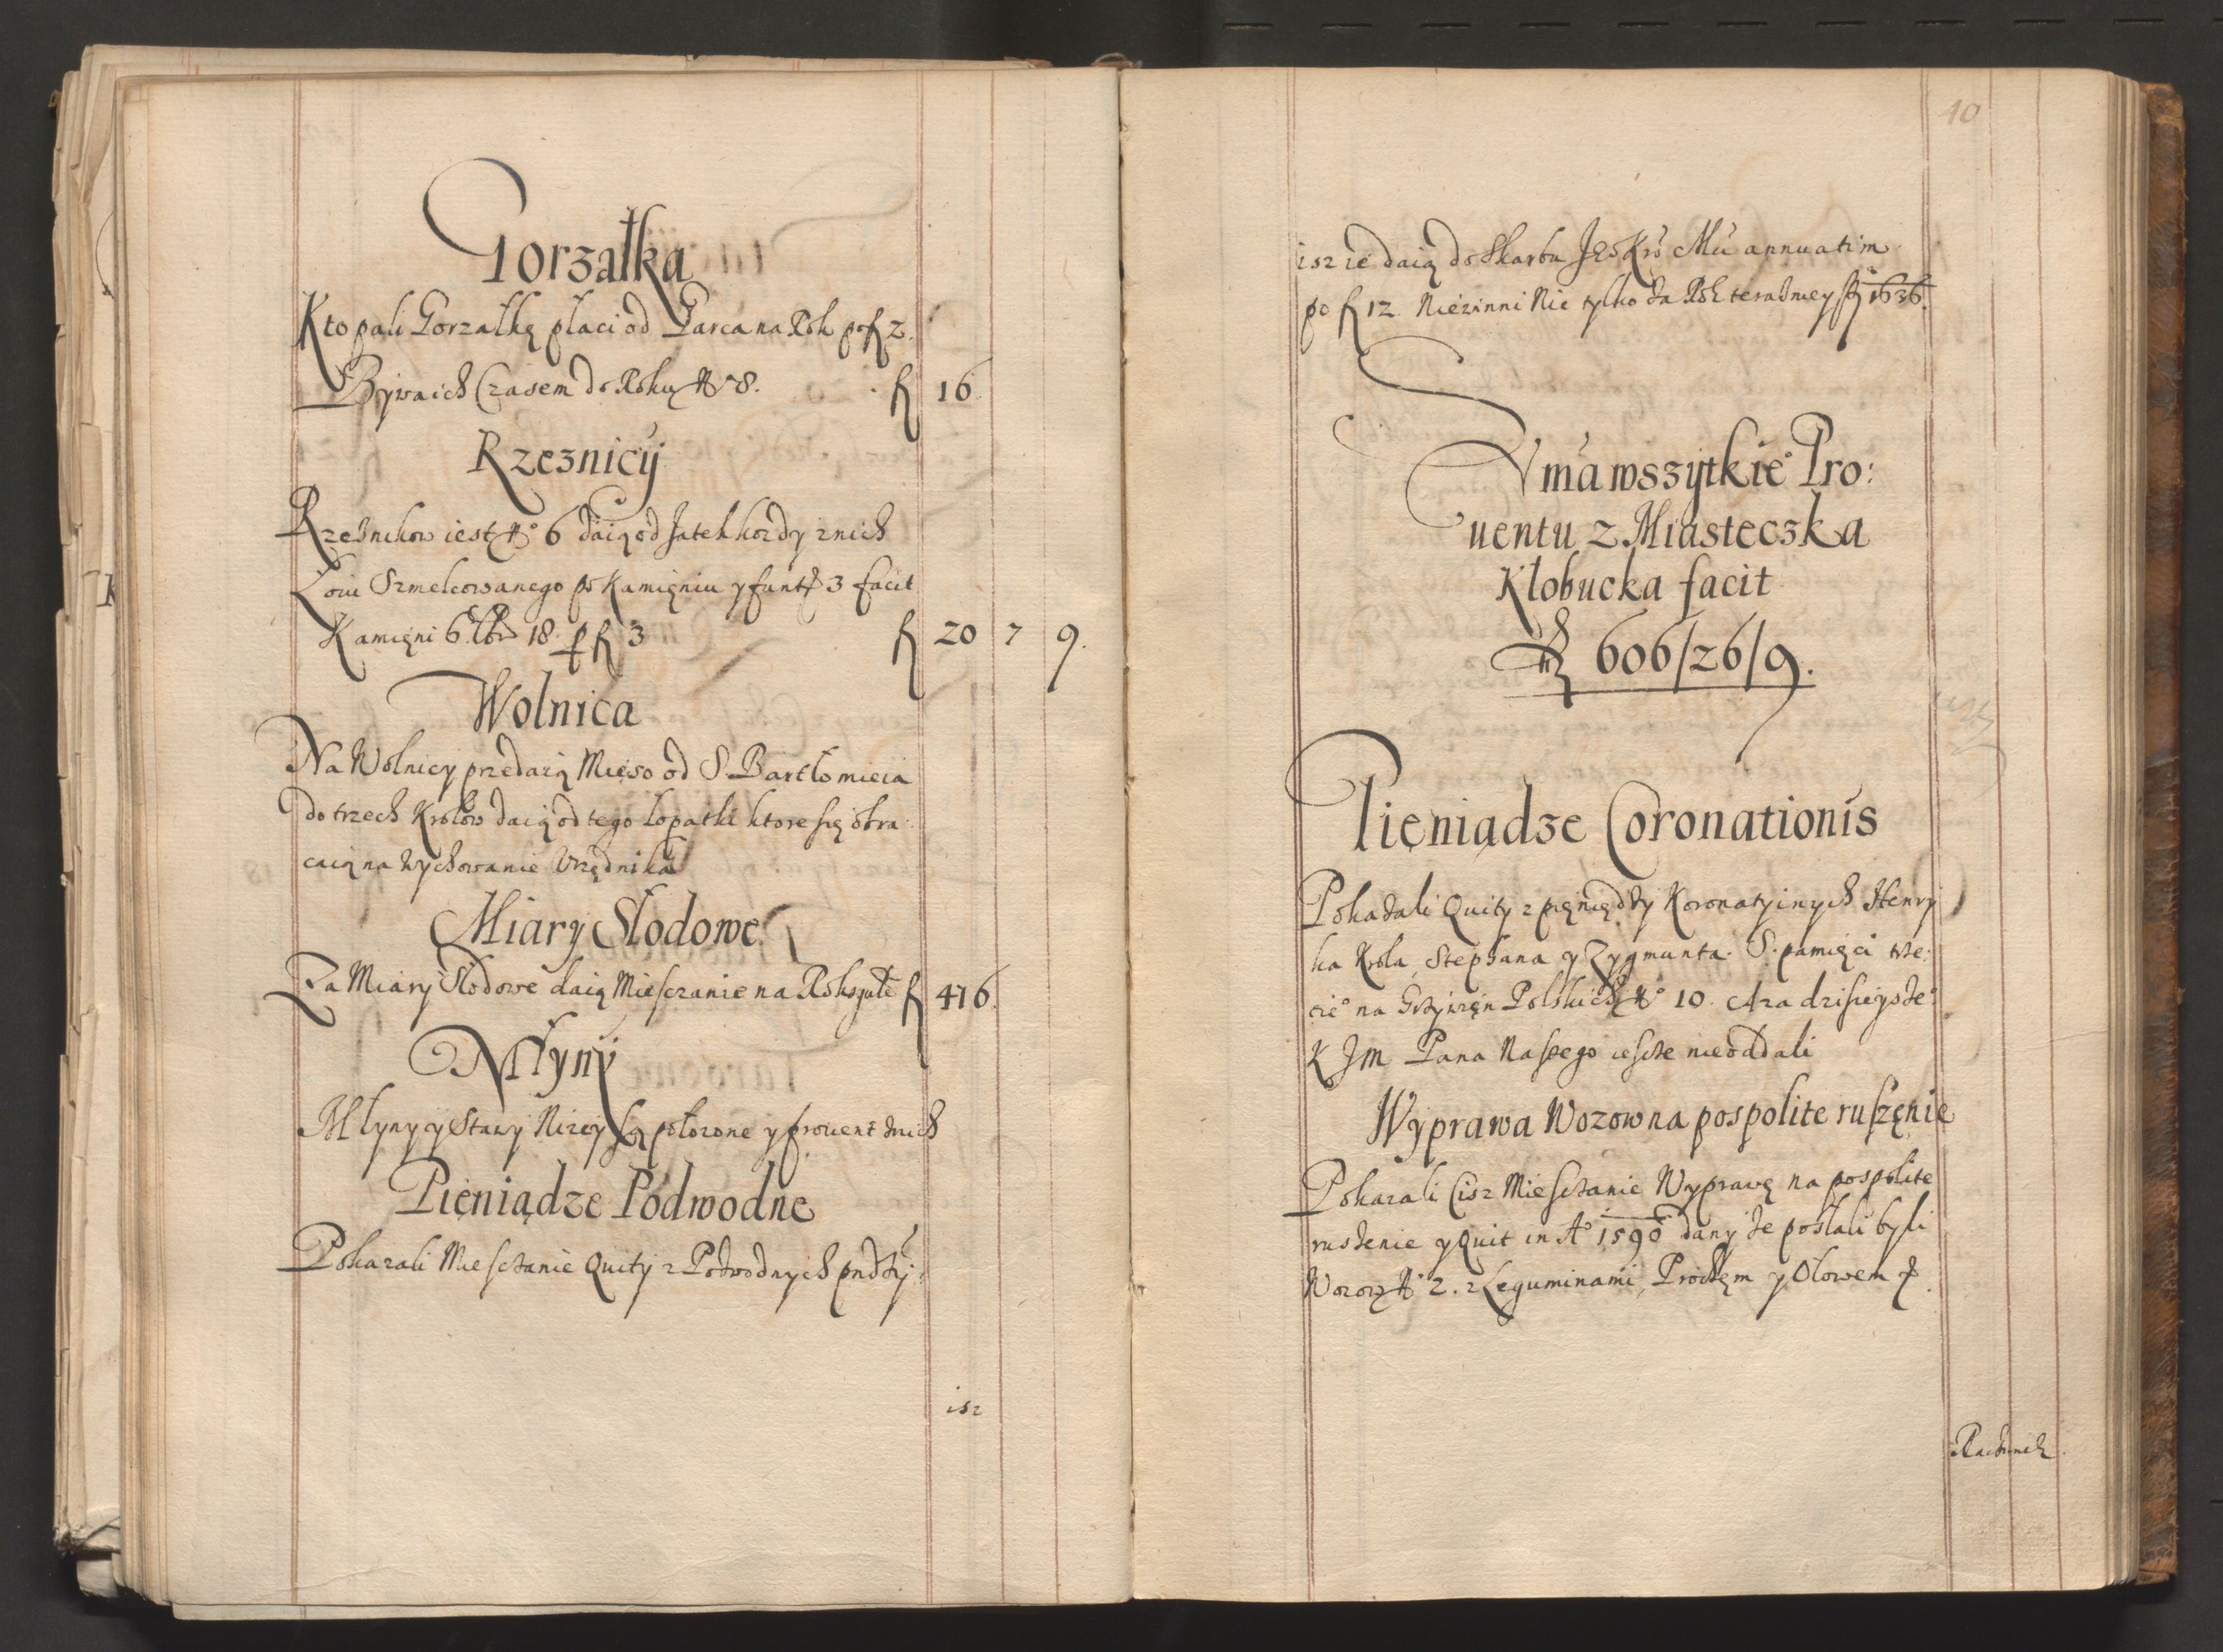 Gorzałka
Kto pali Gorzałkę płaci od Garca na Rok po fl 2.
Bywa ich Czasem do Roku No 8. fl 16
Rzeznicy
Rzeznikow iest No 6 daią od Jatek kozdy z nich
Łoiu Szmelcowanego po Kamięniu y funt 3 facit
Kamięni 6 lbr 18. p fl 3 fl 20 7 9.
Wolnica
Na Wolnicy przedaią Mięso od S. Bartłomieia
do trzech Krolow daią od tego Łopatki ktore się obra:
caią na Wychowanie Vrzędnika
Miary Słodowe
Za Miary Słodowe daią Miesczanie na Rok gute fl 416.
Młyny
Młyny y Stawy Nizey są połozone y prouent znich
Pieniądze Podwodne
Pokazali Miesczanie Quity z Podwodnych pndzy:
isz
10
isz ie daią do Skarbu JeoKró Mci annuatim
po fl 12 Niezinni Nie tylko za Rok terazniey 1636.
Summa wszytkieo Pro:
uentu z Miasteczka
Kłobucka facit
fl 606/26/9.
Pieniądze Coronationis
Pokazali Quity z pięniędzy Koronatyinych Henry
ka Krola, Stephana y Zygmunta S. pamięci trze:
cieo na Grzywięn Polskich No 10. A za dzisieyszeo
K Jm Pana Naszego ieszcze nieoddali
Wyprawa Wozow na pospolite ruszęnie
Pokazali Cisz Miesczanie Wyprawę na pospolite
ruszenie y Quit in Ao 1590 dany ze posłali byli
Wozow No 2. z Leguminami, Prochęm y Ołowem
Rachunek